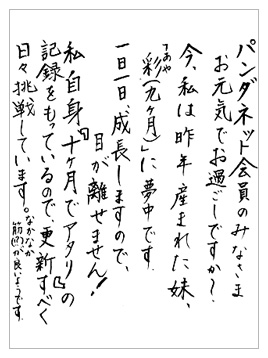 パンダネット会員のみなさま
お元気でお過ごしですか〜
今、私は昨年産まれた妹、
「彩(九ヶ月)」に夢中です
あや
一日一日、成長しますので、
目が離せません!
私自身『十ヶ月でアタリ』の
記録をもっているので、更新すべく
日々挑戦しています。なかなか
筋がい良いようです